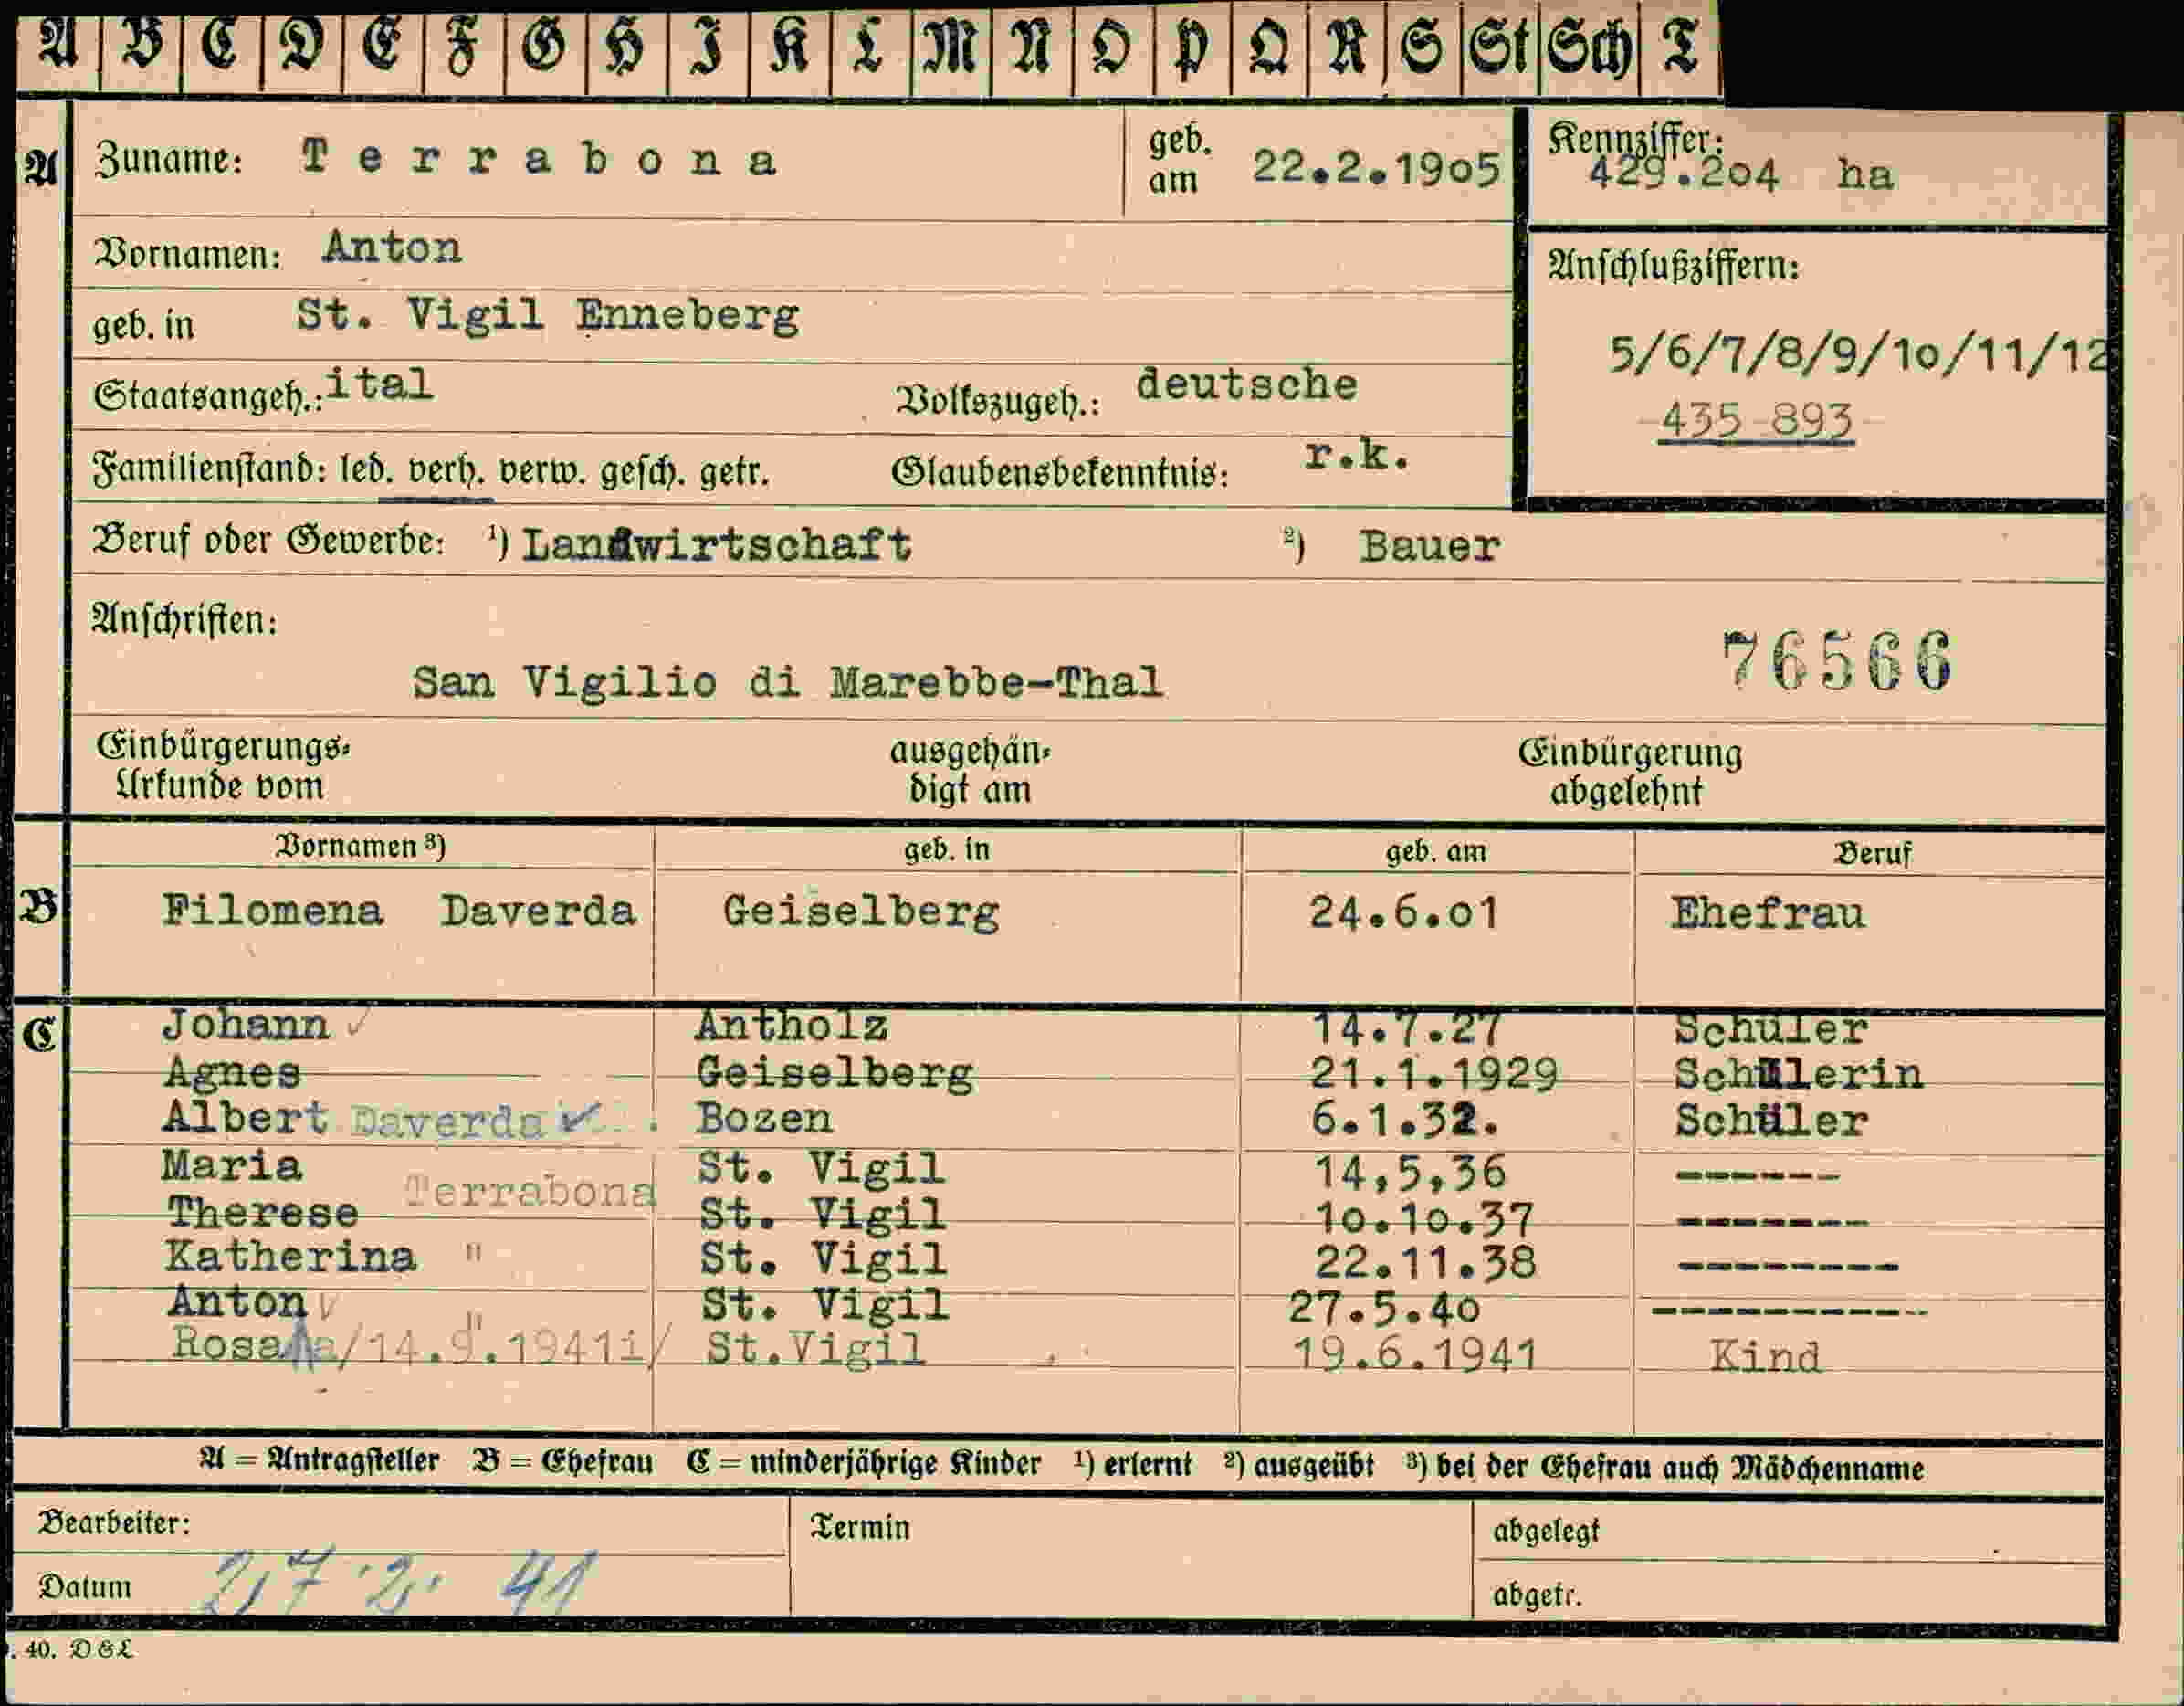 A B C D E F G H I K L M N O P Q R S St Sch T
A Zuname: Terrabona geb. am 22.2.1905 Kennziffer: 429.204 ha
Vornamen: Anton
Anschlußziffern:
geb. in St. Vigil Enneberg
5/6/7/8/9/10/11/12
Staatsangeh.: ital Volkszugeh.: deutsche
435 893
Familienstand: led. verh. verw. gesch. getr. Glaubensbekenntnis: r.k.
Beruf oder Gewerbe: ¹) Landwirtschaft ²) Bauer
Anschriften:
76566
San Vigilio di Marebbe-Thal
Einbürgerungs-Urkunde vom ausgehändigt am Einbürgerung abgelehnt
Vornamen ³) geb. in geb. am Beruf
B Filomena Daverda Geiselberg 24.6.01 Ehefrau
C Johann ✓ Antholz 14.7.27 Schüler
Agnes Geiselberg 21.1.1929 Schülerin
Albert Daverda ✓ Bozen 6.1.32. Schüler
Maria St. Vigil 14,5,36 ------
Terrabona
Therese St. Vigil 10.10.37 -------
Katherina " St. Vigil 22.11.38 --------
Anton ✓ " St. Vigil 27.5.40 ----------
Rosa /14.9.1941 / St.Vigil 19.6.1941 Kind
A = Antragsteller B = Ehefrau C = minderjährige Kinder ¹) erlernt ²) ausgeübt ³) bei der Ehefrau auch Mädchenname
Bearbeiter: Termin abgelegt
Datum 27.2. 41 abgetr.
. 40. D&L